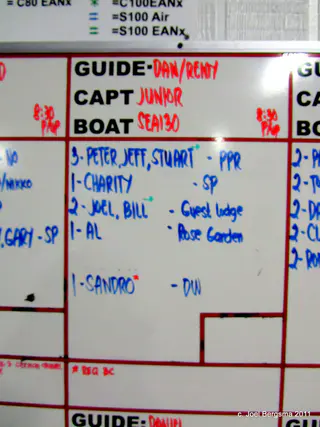 = C80 EANx
= C100EANx
= S100 Air
= S100 EANx
GUIDE- DAN/REMY
CAPT JUNIOR
BOAT SEA130
8:30
8:30
3- PETER, JEFF, STUART* - PPR
1- CHARITY - SP
2- JOEL, BILL - Guest lodge
1- AL - Rose Garden
1- SANDRO* - DW
GARY - SP
* REQ BC
GUIDE:
c. Joel Bergsma 2011